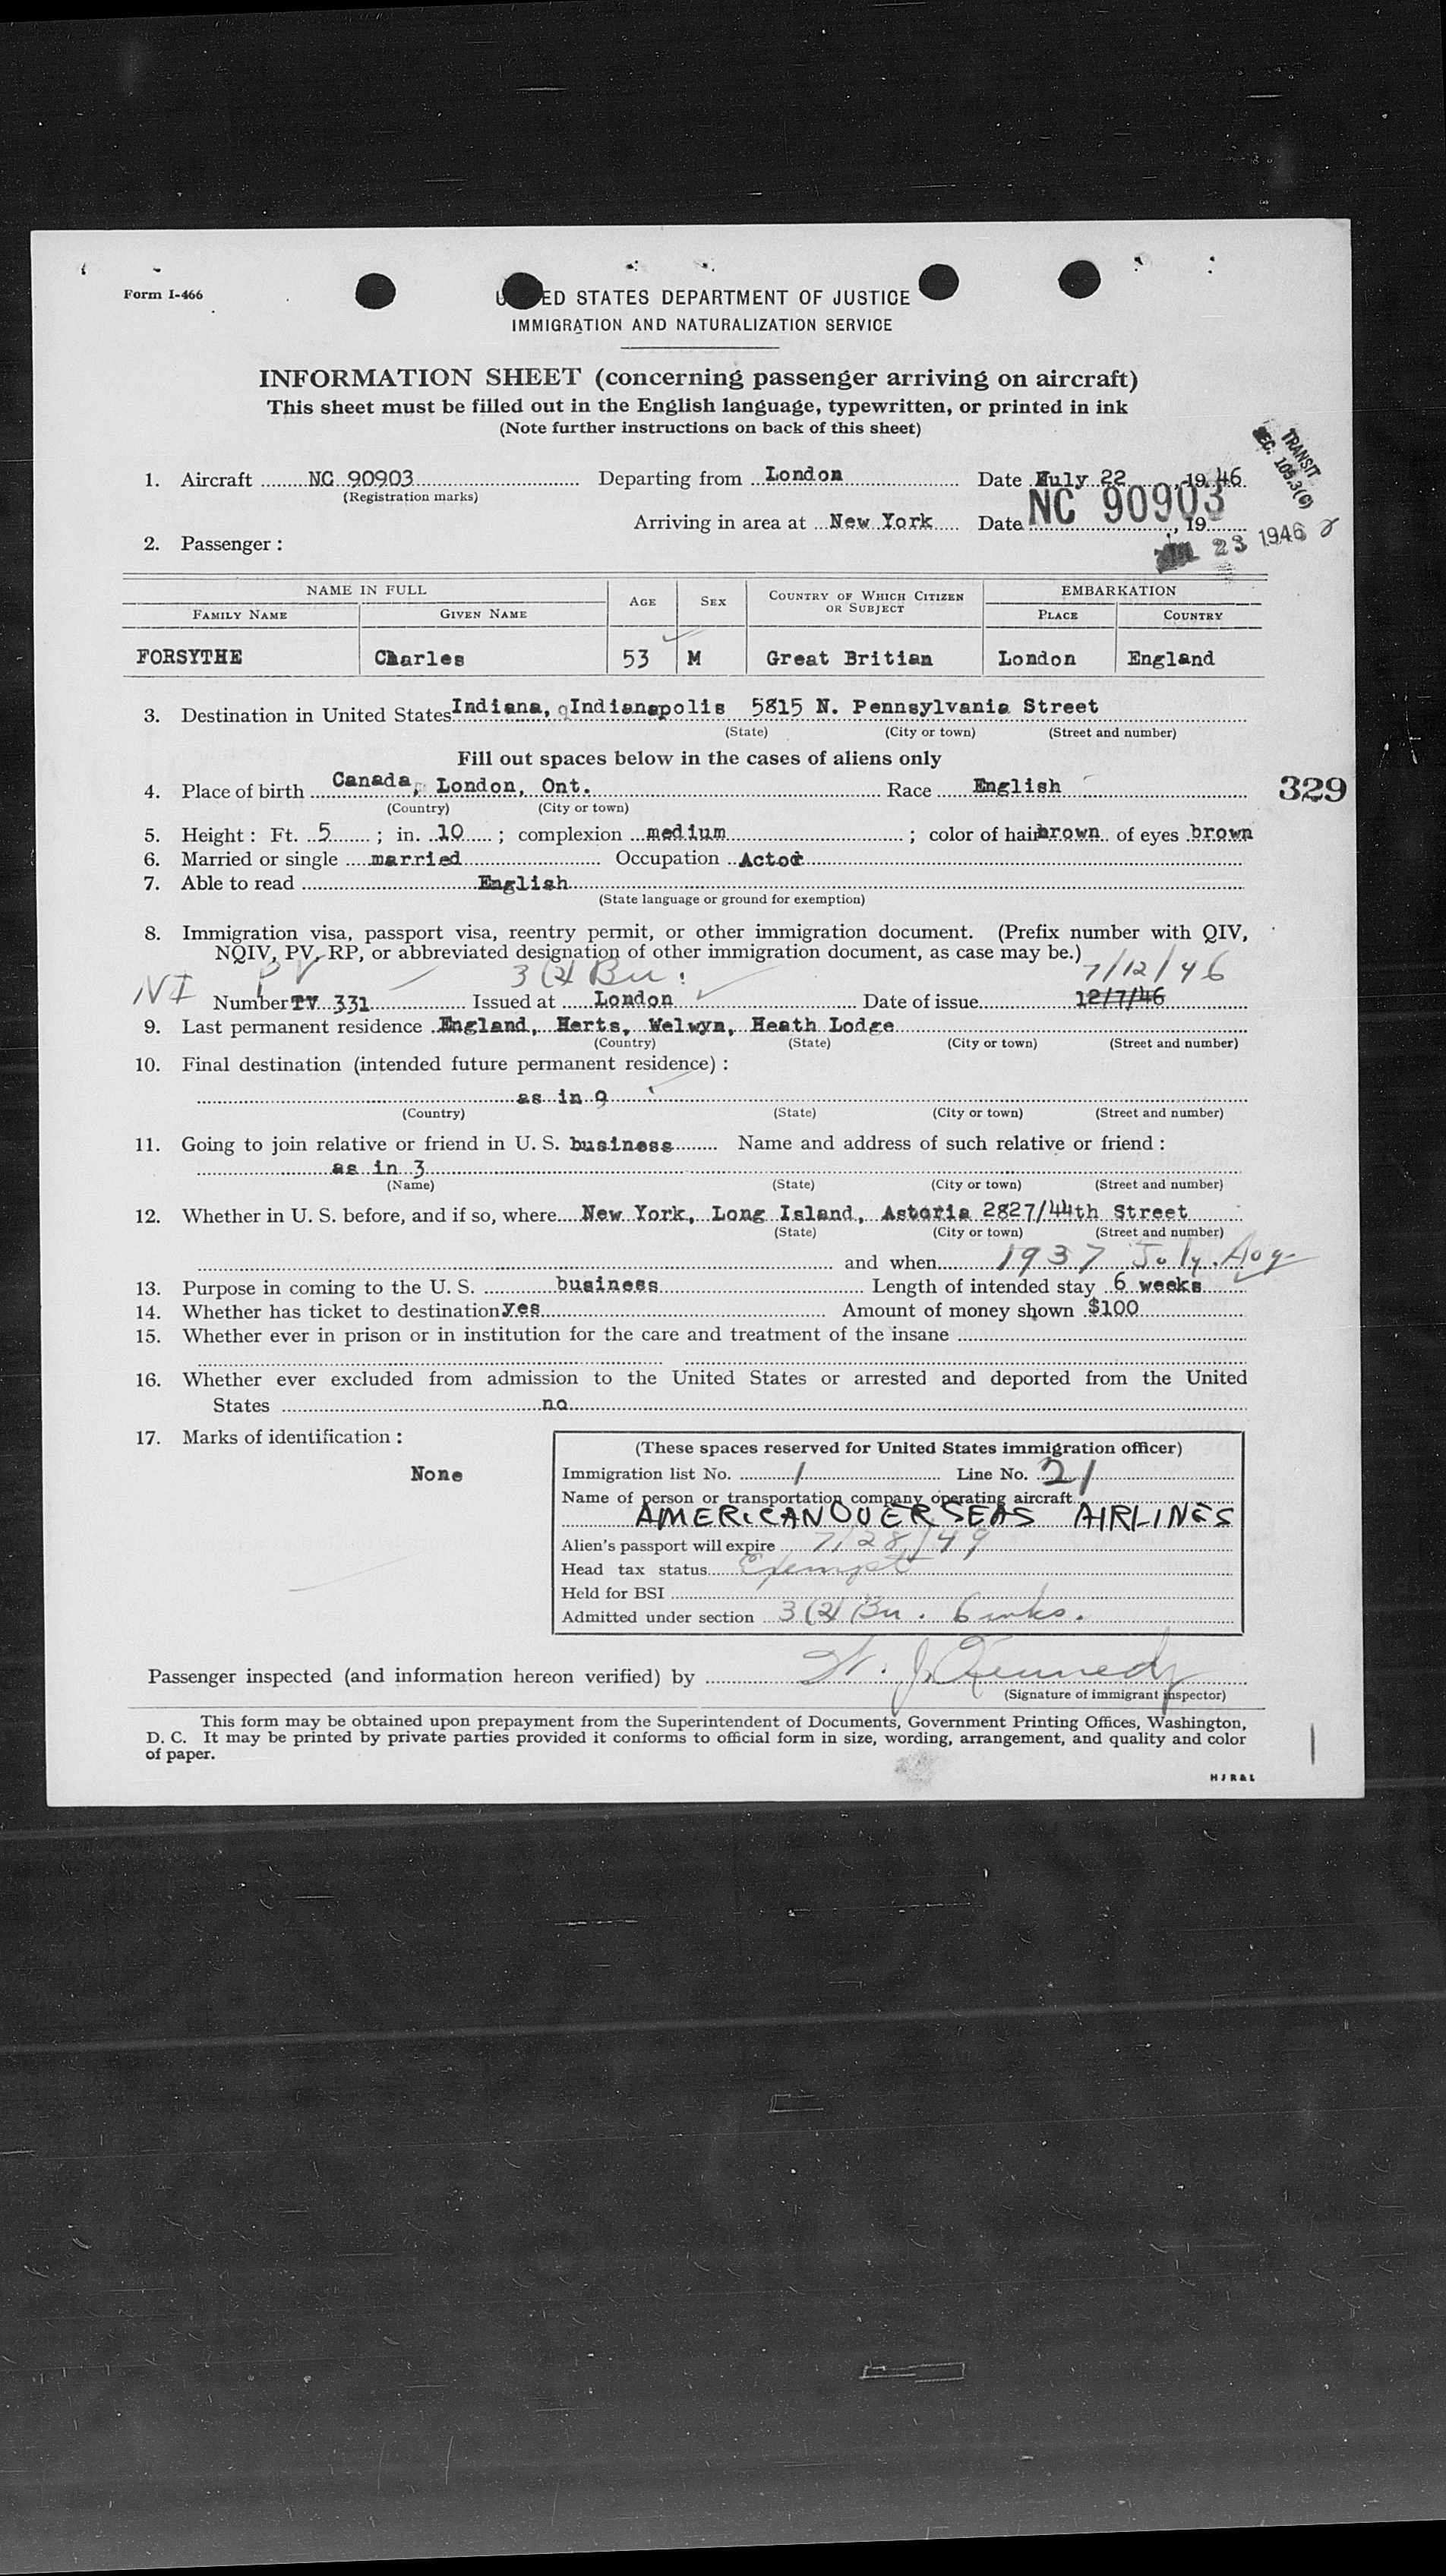 Form I-466
ED STATES DEPARTMENT OF JUSTICE
IMMIGRATION AND NATURALIZATION SERVICE
INFORMATION SHEET (concerning passenger arriving on aircraft)
This sheet must be filled out in the English language, typewritten, or printed in ink
(Note further instructions on back of this sheet)
TRANSIT
SEC. 105.3(C)
1. Aircraft NC 90903 Departing from London Date July 22, 19 46
(Registration marks)
NC 90903
Arriving in area at New York Date , 19
23 1946
2. Passenger :
NAME IN FULL AGE SEX COUNTRY OF WHICH CITIZEN OR SUBJECT EMBARKATION
FAMILY NAME GIVEN NAME PLACE COUNTRY
FORSYTHE Charles 53 M Great Britian London England
3. Destination in United States Indiana, Indianapolis 5815 N. Pennsylvania Street
(State) (City or town) (Street and number)
Fill out spaces below in the cases of aliens only
4. Place of birth Canada, London, Ont. Race English
(Country) (City or town)
329
5. Height : Ft. 5 ; in. 10 ; complexion medium ; color of hair brown of eyes brown
6. Married or single married Occupation Actor
7. Able to read English
(State language or ground for exemption)
8. Immigration visa, passport visa, reentry permit, or other immigration document. (Prefix number with QIV,
NQIV, PV, RP, or abbreviated designation of other immigration document, as case may be.)
PV 3(2) Bu: 7/12/46
NI Number TV 331 Issued at London Date of issue 12/7/46
9. Last permanent residence England, Herts, Welwyn, Heath Lodge
(Country) (State) (City or town) (Street and number)
10. Final destination (intended future permanent residence) :
as in 9
(Country) (State) (City or town) (Street and number)
11. Going to join relative or friend in U. S. business Name and address of such relative or friend :
as in 3
(Name) (State) (City or town) (Street and number)
12. Whether in U. S. before, and if so, where New York, Long Island, Astoria 2827/44th Street
(State) (City or town) (Street and number)
and when 1937 July. Aug-
13. Purpose in coming to the U. S. business Length of intended stay 6 weeks
14. Whether has ticket to destination yes Amount of money shown $100
15. Whether ever in prison or in institution for the care and treatment of the insane
16. Whether ever excluded from admission to the United States or arrested and deported from the United
States no
17. Marks of identification :
None
(These spaces reserved for United States immigration officer)
Immigration list No. 1 Line No. 21
Name of person or transportation company operating aircraft
AMERICAN OVERSEAS AIRLINES
Alien's passport will expire 7/28/49
Head tax status Exempt
Held for BSI
Admitted under section 3(2) Bu. 6 wks.
Passenger inspected (and information hereon verified) by W. J. Kennedy
(Signature of immigrant inspector)
This form may be obtained upon prepayment from the Superintendent of Documents, Government Printing Offices, Washington,
D. C. It may be printed by private parties provided it conforms to official form in size, wording, arrangement, and quality and color
of paper.
H J R & L